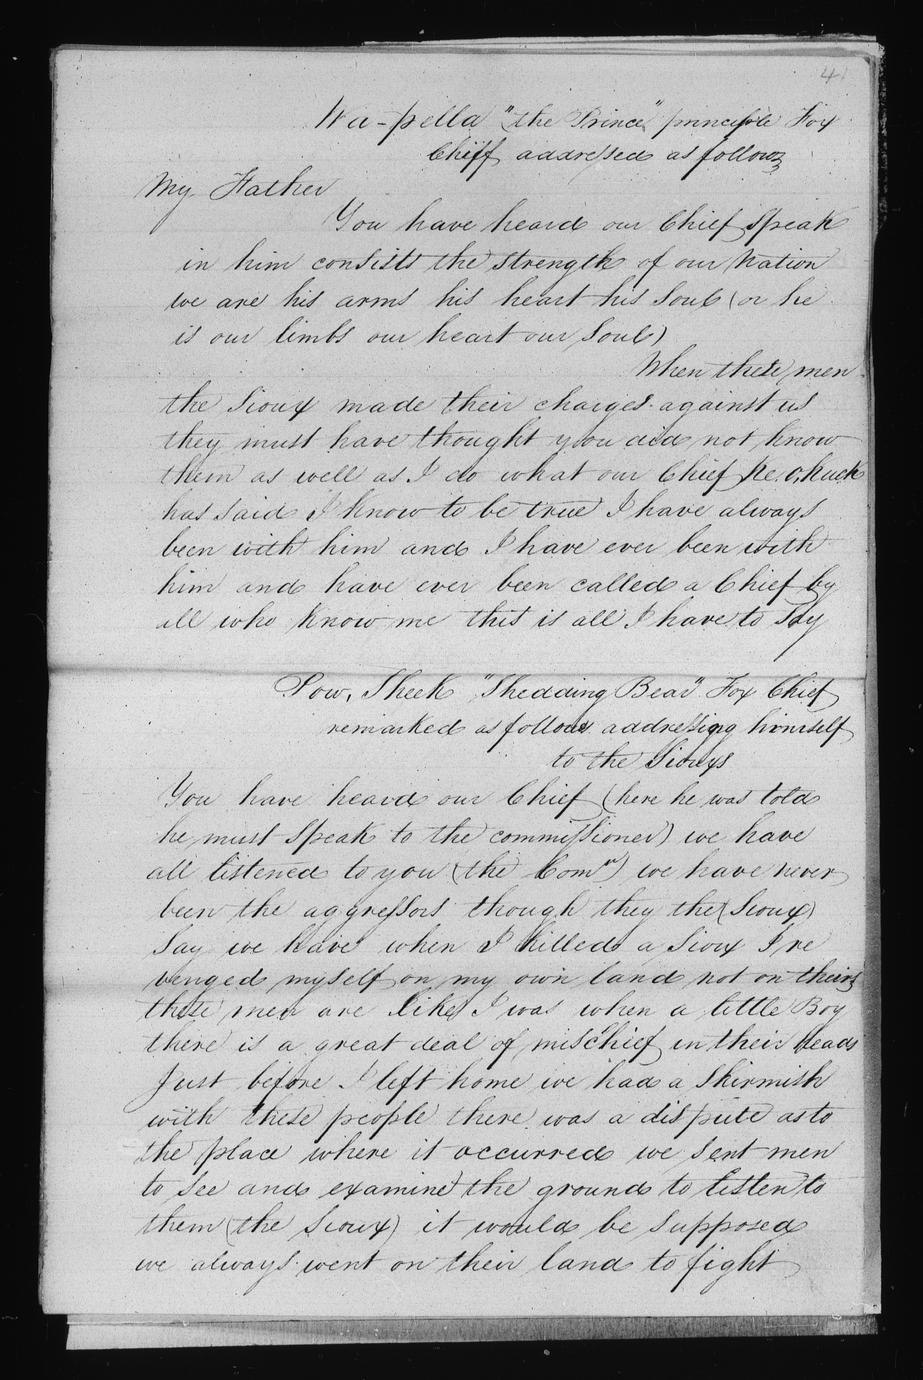 41
Wa-pella "the Prince" principle Fox
Chief addressed as follows
My Father
You have heard our Chief speak
in him consists the strength of our Nation
we are his arms his heart his Soul (or he
is our limbs our heart our Soul)
When these men
the Sioux made their charges against us
they must have thought you did not know
them as well as I do what our Chief Ke,o,kuck
has said I know to be true I have always
been with him and I have ever been with
him and have ever been called a Chief by
all who know me this is all I have to Say
Pow, Sheek "Shedding Bear" Fox Chief
remarked as follows addressing himself
to the Siouxs
You have heard our Chief (here he was told
he must Speak to the commissioner) we have
all listened to you (the Comr) we have never
been the aggressors though they the (Sioux)
Say we have when I killed a Sioux I re
venged myself on my own land not on theirs
these men are like I was when a little Boy
there is a great deal of mischief in their heads
Just before I left home we had a Skirmish
with these people there was a dispute as to
the place where it occurred we Sent men
to See and examine the ground to listen to
them (the Sioux) it would be Supposed
we always went on their land to fight